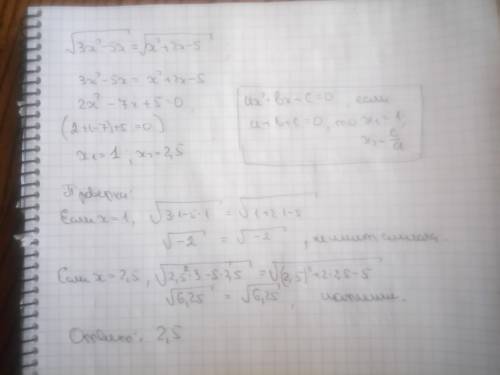 √3x²-5x = √x²+2x-5
3x²-5x = x²+2x-5
2x²-7x+5=0
(2+(-7)+5=0)
x₁=1, x₂=2,5
ax²+bx+c=0, если
a+b+c=0, то x₁=1,
x₂=c/a
Проверка:
Если x=1, √3·1-5·1 = √1+2·1-5
√-2 = √-2, не имеет смысла.
Если x=2,5, √2,5²·3-5·2,5 = √(2,5)²+2·2,5-5
√6,25 = √6,25, истинно.
Ответ: 2,5